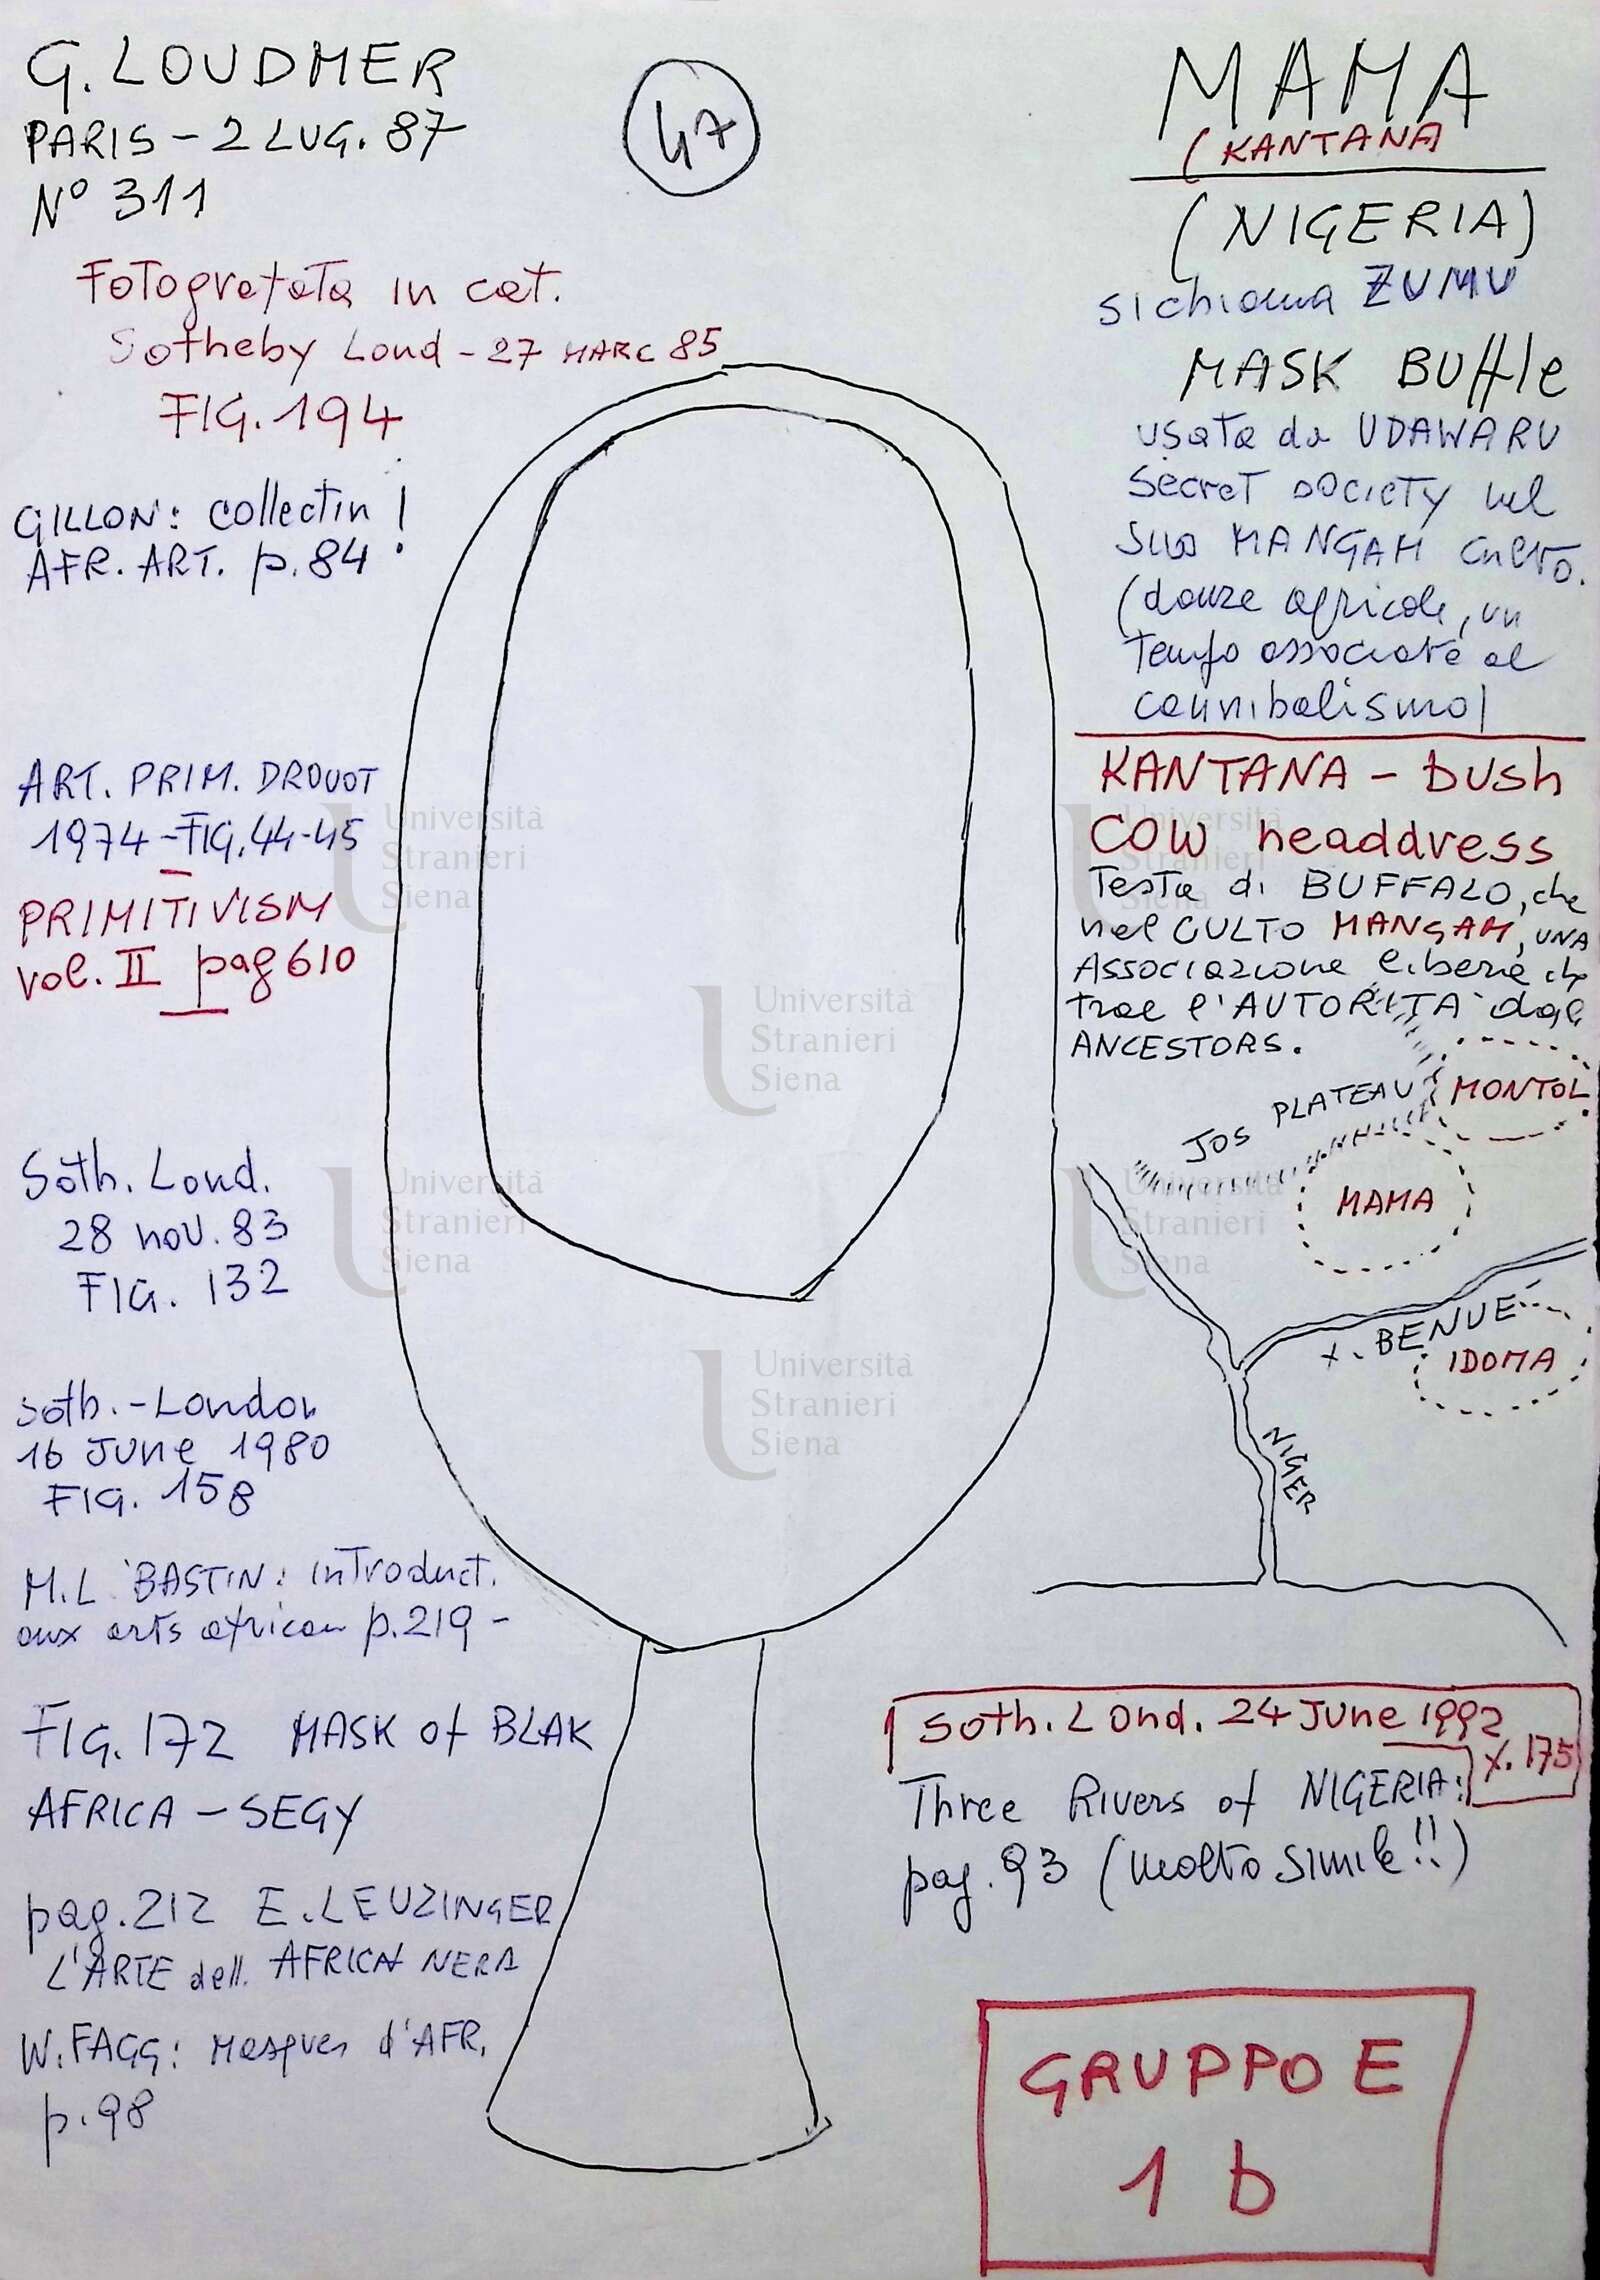 G. LOUDMER
PARIS - 2 LUG. 87
N° 311
47
Fotografata in cat.
Sotheby Lond - 27 MARC 85
FIG. 194
GILLON: collectin !
AFR. ART. p. 84
ART. PRIM. DROUOT
1974 - FIG. 44-45
PRIMITIVISM
vol. II pag 610
Soth. Lond.
28 nov. 83
FIG. 132
Soth. - London
16 June 1980
FIG. 158
M.L BASTIN: introduct.
aux arts african p. 219 -
FIG. 172 MASK of BLAK
AFRICA - SEGY
pag. 212 E. LEUZINGER
L'ARTE dell. AFRICA NERA
W. FAGG: Masques d'AFR.
p. 98
MAMA
(KANTANA
(NIGERIA)
si chiama ZUMU
MASK BUffle
usata da UDAWARU
Secret SOCIETY nel
suo MANGAM culto.
(danze agricole, un
tempo associate al
cannibalismo)
KANTANA - bush
COW headdress
Testa di BUFFALO, che
nel CULTO MANGAM, UNA
Associazione che
trae l'AUTORITA' dagli
ANCESTORS.
JOS PLATEAU
MONTOL
MAMA
BENUE
IDOMA
NIGER
Soth. Lond. 24 June 1992
x. 175
Three Rivers of NIGERIA:
pag. 93 (molto simile!!)
GRUPPO E
1 b
Università
Stranieri
Siena
Università
Stranieri
Siena
Università
Stranieri
Siena
Università
Stranieri
Siena
Università
Stranieri
Siena
Università
Stranieri
Siena